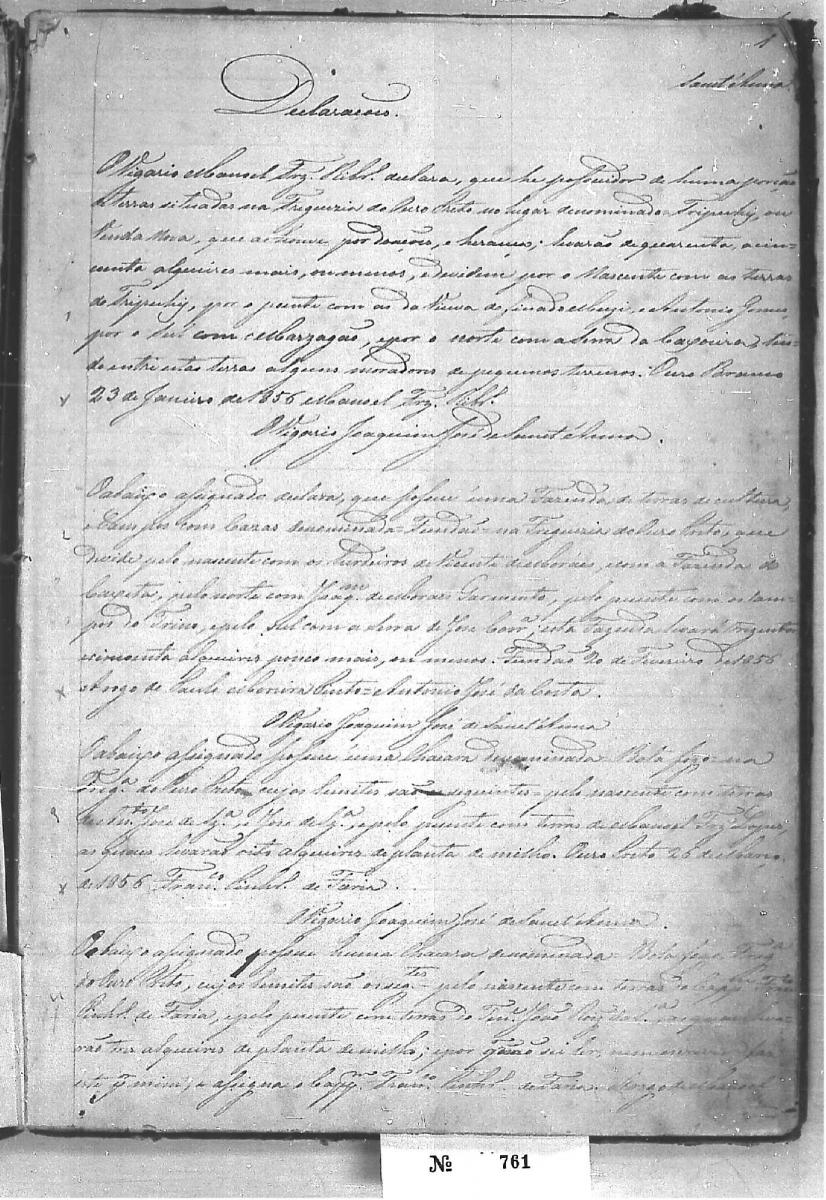 1
Sant'Anna
Declaraçoens.
O Vigario Manoel Frz.' Ribr.º declara, que he possuidor de huma porção
de terras situadas na Freguezia do Ouro Preto no lugar denominado = Tripuhy, ou
Venda Nova, que as houve por doações, e heranças; levarão de quarenta, a cin-
coenta alqueires mais, ou menos, e devidem por o Nascente com as terras
do Tripuhy, por o puente com os da Viuva do finado e Antonio Gomes
por o Sul com Marzagão, e por o norte com a Serra da Caxoeira, ten-
do entre estas terras alguns moradores de pequenos terreiros. Ouro Branco
23 de Janeiro de 1856 Manoel Frz.' Ribr.º
O Vigario Joaquim José de Sant'Anna.
O abaixo assignado declara, que possue uma Fazenda de terras de cultura,
e Campos com Cazas denominada = Fundão = na Freguezia do Ouro Preto, que
devide pelo nascente com os herdeiros de Vicente de Moraes, e com a Fazenda do
pelo norte com Joaq.m de Moraes Sarmento, pelo puente com os cam-
pos do Trino, e pelo Sul com a serra de José Corr.ª, esta Fazenda levará trezentos
e cincoenta alqueires pouco mais, ou menos. Fundão 20 de Fevereiro de 1856
A rogo de Paulo Moreira Pinto = Antonio José da Costa.
O Vigario Joaquim José de Sant'Anna
O abaixo assignado possue uma Chacara denominada = Bota fogo = na
Freg.ª do Ouro Preto cujos lemites são os seguintes = pelo nascente com terras
de José de e José de e pelo puente com terras de Manoel Frz.' Lopes,
as quaes levarão oito alqueires de planta de milho. Ouro Preto 26 de Março
de 1856. Fran.co Pinhr.º de Faria.
O Vigario Joaquim José de Sant'Anna.
O abaixo assignado possue huma Chacara denominada = Bota fogo, Freg.ª
do Ouro Preto, cujos lemites são os seg.tes = pelo nascente com terras do Cap.m Fran.co
Pinhr.º de Faria, e pelo puente com terras do Ten.e João as quaes leva-
rão tres alqueires de planta de milho; e por não saber ler, nem escrever faz
este p.r mim, e assigna o Cap.m Fran.co Pinhr.º de Faria. A rogo de
Nº 761